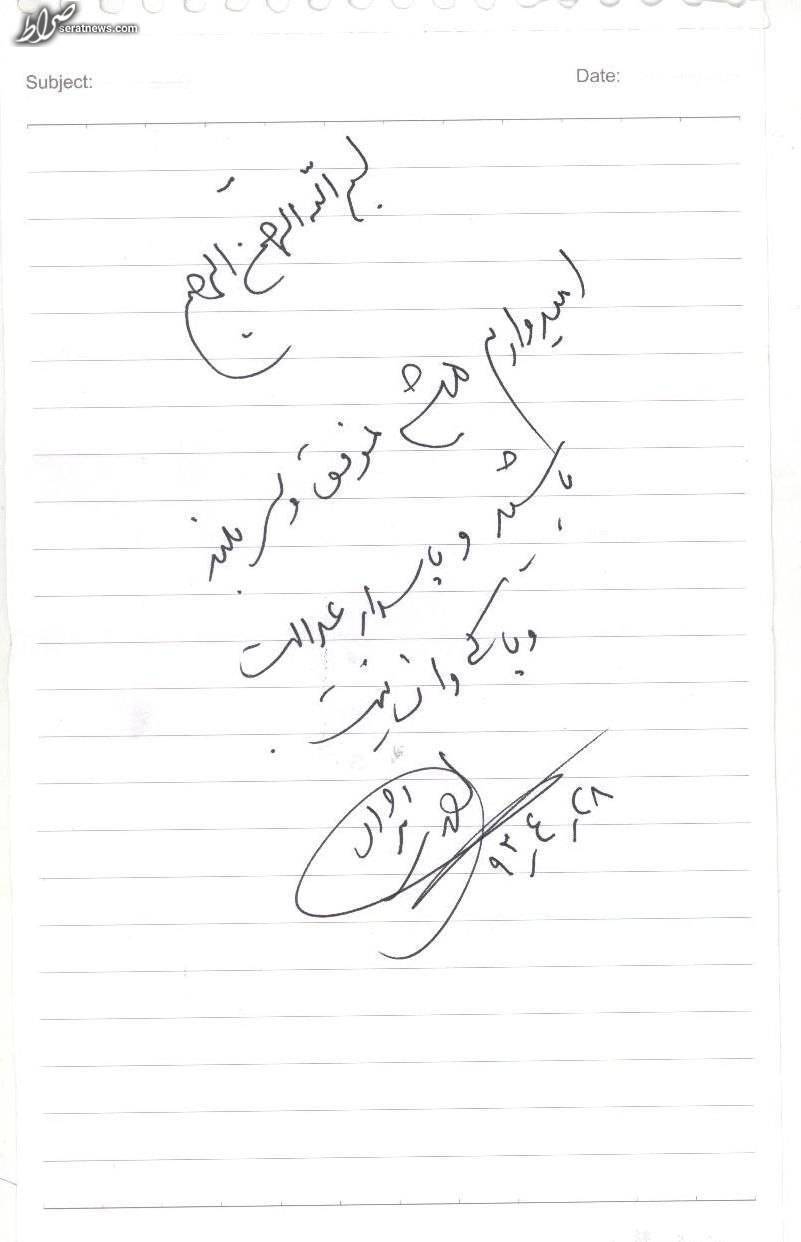 صراط
seratnews.com
Subject:
Date:
بسم الله الرحمن الرحیم
امیدوارم همه موفق و سر بلند
باشید و پاسدار عدالت
و پاکی و انسانیت .
۹۳/۴/۲۸